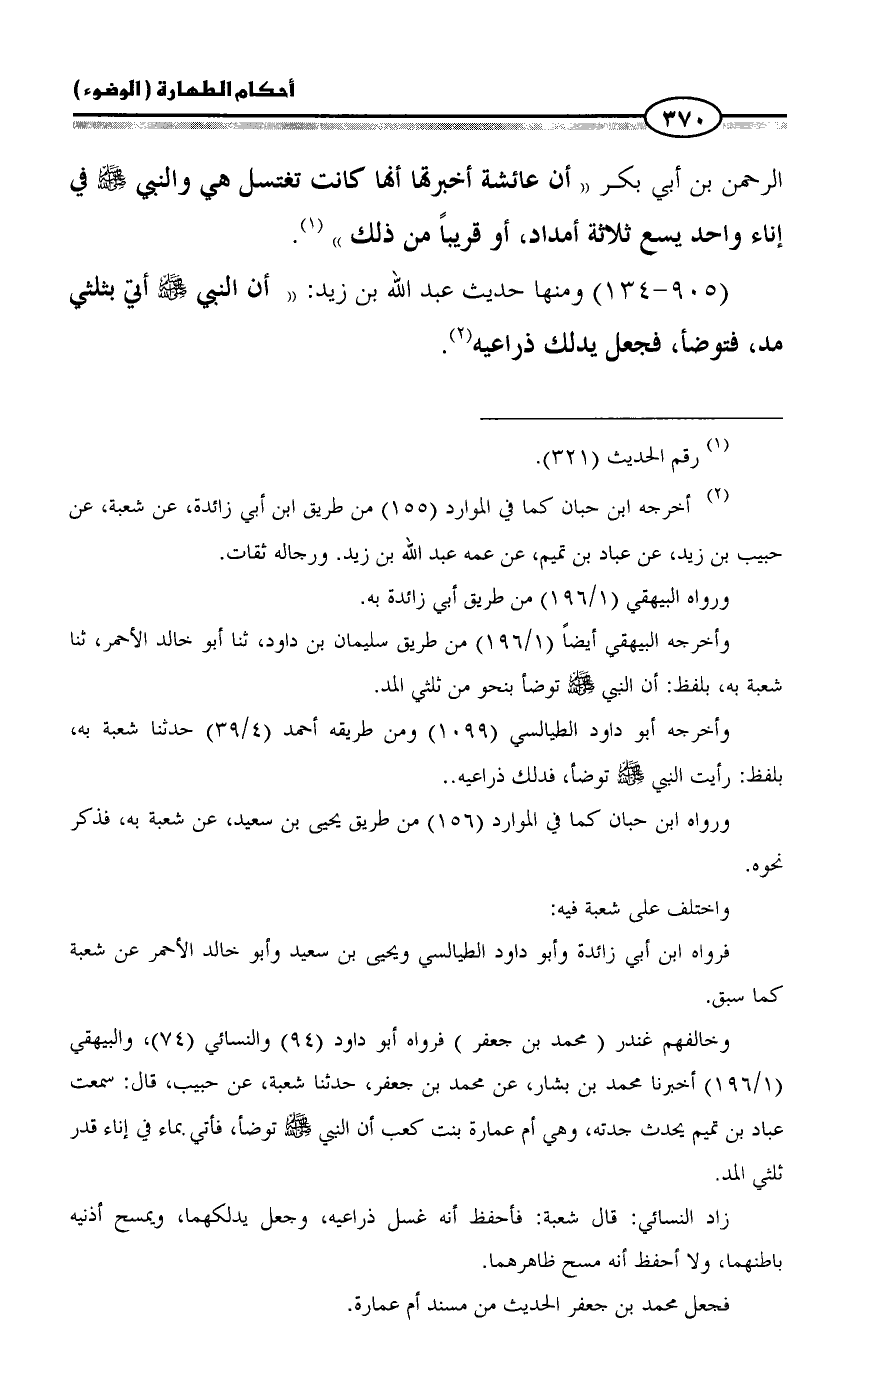 أحكام الطهارة (الوضوء)
٣٧٠
الرحمن بن أبي بكر « أن عائشة أخبرتها أنها كانت تغتسل هي والنبي ﷺ في
إناء واحد يسع ثلاثة أمداد، أو قريباً من ذلك » (١).
(٩٠٥-١٣٤) ومنها حديث عبد الله بن زيد: « أن النبي ﷺ أتي بثلثي
مد، فتوضأ، فجعل يدلك ذراعيه(٢).
(١) رقم الحديث (٣٢١).
(٢) أخرجه ابن حبان كما في الموارد (١٥٥) من طريق ابن أبي زائدة، عن شعبة، عن
حبيب بن زيد، عن عباد بن تميم، عن عمه عبد الله بن زيد. ورجاله ثقات.
ورواه البيهقي (١/ ١٩٦) من طريق أبي زائدة به.
وأخرجه البيهقي أيضاً (١/ ١٩٦) من طريق سليمان بن داود، ثنا أبو خالد الأحمر، ثنا
شعبة به، بلفظ: أن النبي ﷺ توضأ بنحو من ثلثي المد.
وأخرجه أبو داود الطيالسي (١٠٩٩) ومن طريقه أحمد (٤/ ٣٩) حدثنا شعبة به،
بلفظ: رأيت النبي ﷺ توضأ، فدلك ذراعيه..
ورواه ابن حبان كما في الموارد (١٥٦) من طريق يحيى بن سعيد، عن شعبة به، فذكر
نحوه.
واختلف على شعبة فيه:
فرواه ابن أبي زائدة وأبو داود الطيالسي ويحيى بن سعيد وأبو خالد الأحمر عن شعبة
كما سبق.
وخالفهم غندر ( محمد بن جعفر ) فرواه أبو داود (٩٤) والنسائي (٧٤)، والبيهقي
(١/ ١٩٦) أخبرنا محمد بن بشار، عن محمد بن جعفر، حدثنا شعبة، عن حبيب، قال: سمعت
عباد بن تميم يحدث جدته، وهي أم عمارة بنت كعب أن النبي ﷺ توضأ، فأتي بماء في إناء قدر
ثلثي المد.
زاد النسائي: قال شعبة: فأحفظ أنه غسل ذراعيه، وجعل يدلكهما، ويمسح أذنيه
باطنهما، ولا أحفظ أنه مسح ظاهرهما.
فجعل محمد بن جعفر الحديث من مسند أم عمارة.